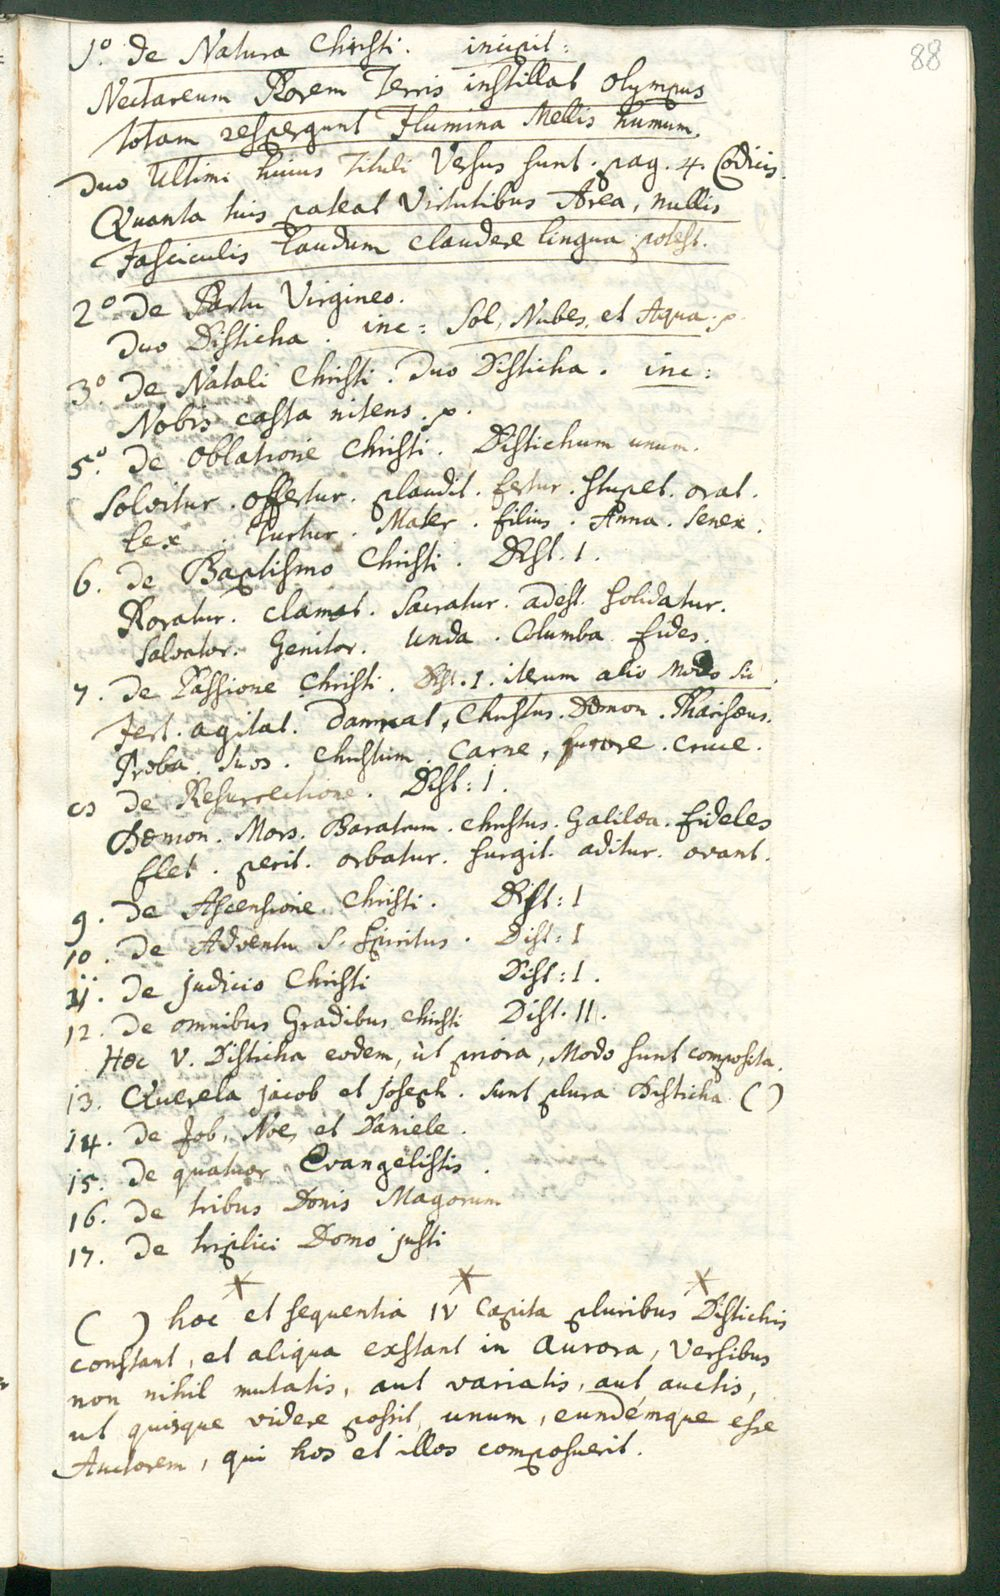 88
1º. de Natura Christi. incipit:
Nectareum Rorem Terris instillat Olympus
totam respergunt Flumina Mellis humum.
Duo Ultimi huius Tituli Versus sunt. pag. 4. Codicis.
Quanta tuis pateat Virtutibus Area, nullis
Fasciculis Laudum claudere lingua potest.
2º de Partu Virgineo.
Duo Disticha. inc: Sol, Nubes, et Aqua. p.
3º. de Natali Christi. Duo Disticha. inc:
Nobis casta nitens. p.
5º. de Oblatione Christi. Distichum unum.
Solvitur. offertur. plaudit. fertur. stupet. orat.
Lex. Turtur. Mater. filius. Anna. Senex.
6. de Baptismo Christi. Dist. 1.
Roratur. clamat. Sacratur. adest. solidatur.
Salvator. Genitor. Unda. Columba. fides.
7. de Passione Christi. Dist. 1. iterum alio Modo sic.
Fert. agitat. damnat, Christus. Dæmon. Pharisæus.
Proba. suos. Christum. Carne, furore. cruce.
8 de Resurrectione. Dist: 1.
Dæmon. Mors. Baratrum. Christus. Galilæa. fideles
flet. perit. orbatur. surgit. aditur. ovant.
9. de Ascensione Christi. Dist: 1
10. de Adventu S. Spiritus. Dist: 1
11. de judicio Christi Dist: 1.
12. de omnibus Gradibus Christi Dist. II.
Hæc V. Disticha eodem, ùt priora, Modo sunt composita.
13. Querela jacob et joseph. sunt plura Disticha ( )
14. de Job, Noe, et Daniele.
15. de quatuor Evangelistis.
16. de tribus Donis Magorum
17. de triplici Domo justi
( ) hoc et sequentia IV Capita pluribus Distichis
constant, et aliqua exstant in Aurora, Versibus
non nihil mutatis, aut variatis, aut auctis,
ut quisque videre possit, unum, eundémque esse
Auctorem, qui hos et illos composuerit.